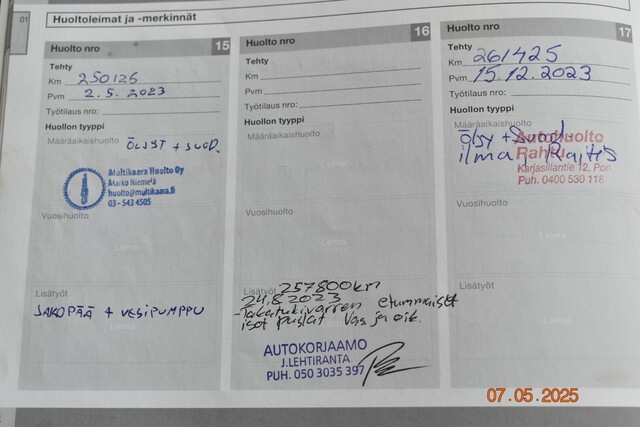 01
Huoltoleimat ja -merkinnät
Huolto nro 15
Tehty
Km 250126
Pvm 2.5.2023
Työtilaus nro:
Huollon tyyppi
Määräaikaishuolto
ÖLJYT + SUOD.
Multikaara Huolto Oy
Marko Niemelä
huolto@multikaara.fi
03 - 543 4505
Vuosihuolto
Leima
Lisätyöt
JAKOPÄÄ + VESIPUMPPU
Huolto nro 16
Tehty
Km
Pvm
Työtilaus nro:
Huollon tyyppi
Määräaikaishuolto
Vuosihuolto
Leima
Lisätyöt 257800km
24.8.2023
-Takatukivarren etummaiset
isot puslat vas ja oik.
AUTOKORJAAMO
J.LEHTIRANTA
PUH. 050 3035 397
Huolto nro 17
Tehty
Km 261425
Pvm 15.12.2023
Työtilaus nro:
Huollon tyyppi
Määräaikaishuolto
Öljy + Suod
ilma, Raitis
Autohuolto
Karjasillantie 12, Pori
Puh. 0400 530 118
Vuosihuolto
Leima
Lisätyöt
07.05.2025